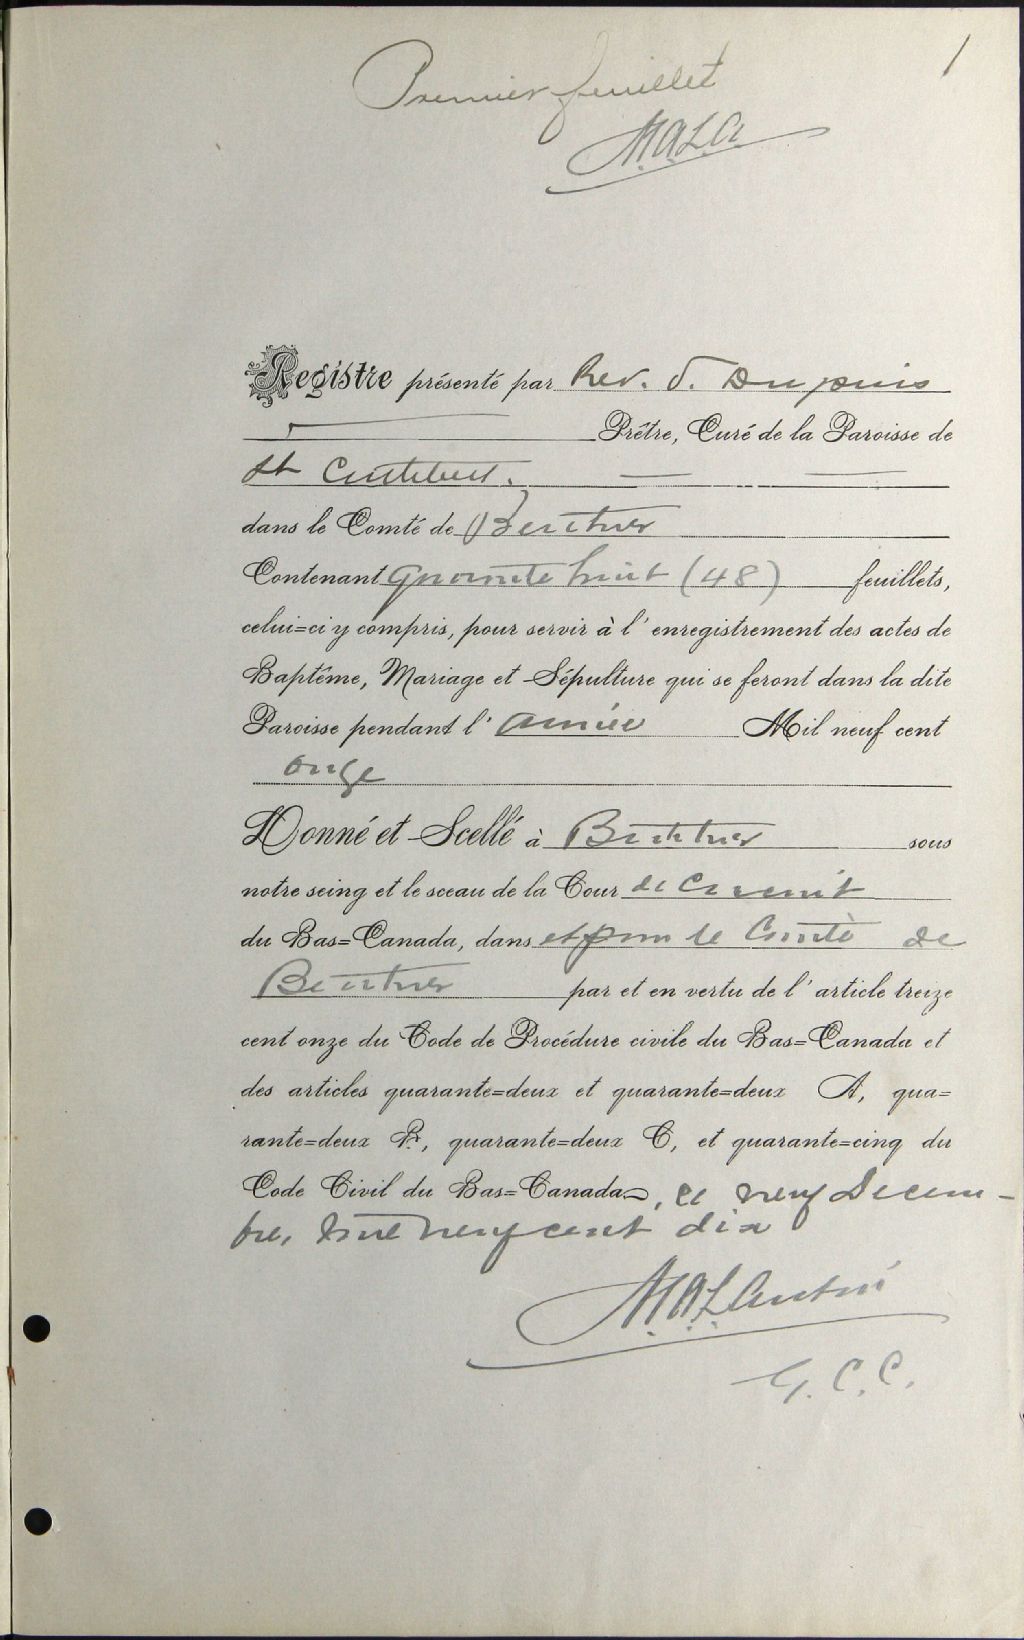 1
Premier feuillet
M.A.L.A.
Registre présenté par Rev. J. Dupuis
Prêtre, Curé de la Paroisse de
St Cuthbert.
dans le Comté de Berthier
Contenant Quarante huit (48) feuillets,
celui=ci y compris, pour servir à l'enregistrement des actes de
Baptême, Mariage et Sépulture qui se feront dans la dite
Paroisse pendant l'année Mil neuf cent
onze
Donné et Scellé à Berthier sous
notre seing et le sceau de la Cour de Circuit
du Bas=Canada, dans et pour le Comté de
Berthier par et en vertu de l'article treize
cent onze du Code de Procédure civile du Bas=Canada et
des articles quarante=deux et quarante=deux A, qua=
rante=deux B, quarante=deux C, et quarante=cinq du
Code Civil du Bas=Canada, ce neuf Decem-
bre, mil neuf cent dix
G. C. C.